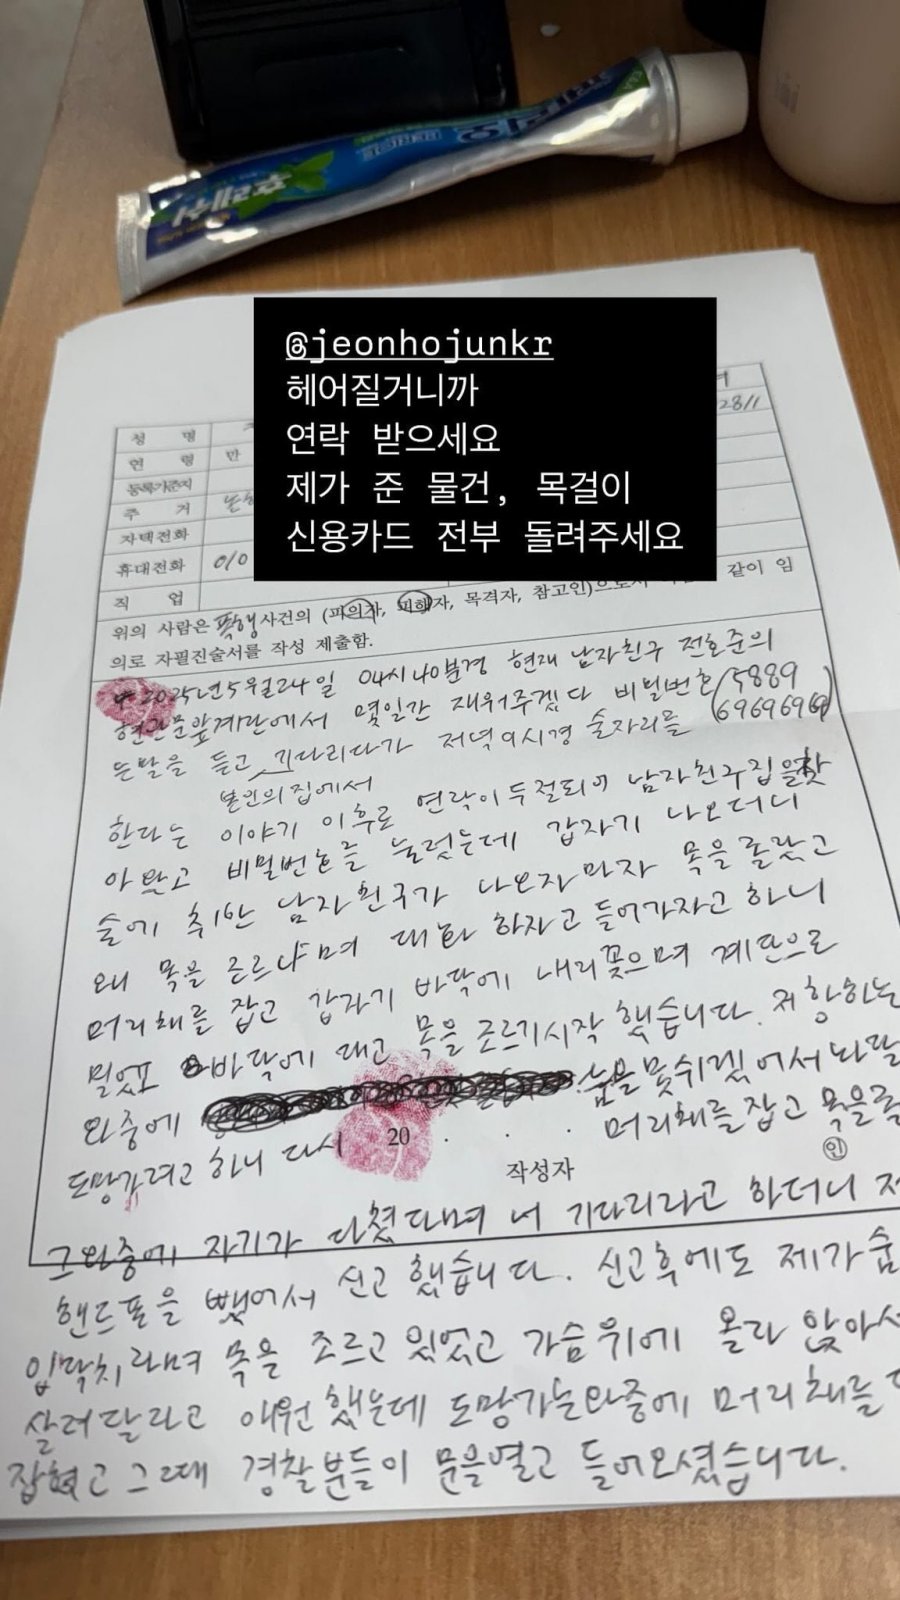 후레쉬
@jeonhojunkr
헤어질거니까
연락 받으세요
제가 준 물건, 목걸이
신용카드 전부 돌려주세요
2811
성 명
연 령 만
등록기준지
주 거
자택전화
휴대전화 010
직 업
위의 사람은 폭행사건의 (피의자, 피해자, 목격자, 참고인)으로서 같이 임
의로 자필진술서를 작성 제출함.
2025년 5월 24일 04시 40분경 현재 남자친구 전호준의
현관문앞계단에서 몇일간 재워주겠다 비밀번호 (5889
는말을 듣고 기다리다가 저녁 9시경 술자리를 6969696)
본인의집에서
한다는 이야기 이후로 연락이 두절되어 남자친구집을찾
아 왔고 비밀번호를 눌렀는데 갑자기 나오더니
술에 취한 남자친구가 나오자마자 목을 졸랐고
왜 목을 조르냐며 대화 하자고 들어가자고 하니
머리채를 잡고 갑자기 바닥에 내리꽂으며 계단으로
밀었고 바닥에 대고 목을 조르기시작 했습니다. 저항하는
와중에 숨을못쉬겠어서 놔달
도망가려고 하니 다시 20 . . . 머리채를 잡고 목을졸
작성자 인
그와중에 자기가 다쳤다며 너 기다리라고 하더니 저
핸드폰을 뺐어서 신고 했습니다. 신고후에도 제가숨
입닥치라며 목을 조르고 있었고 가슴위에 올라 앉아서
살려달라고 애원했는데 도망가는와중에 머리채를
잡혔고 그때 경찰분들이 문을열고 들어오셨습니다.